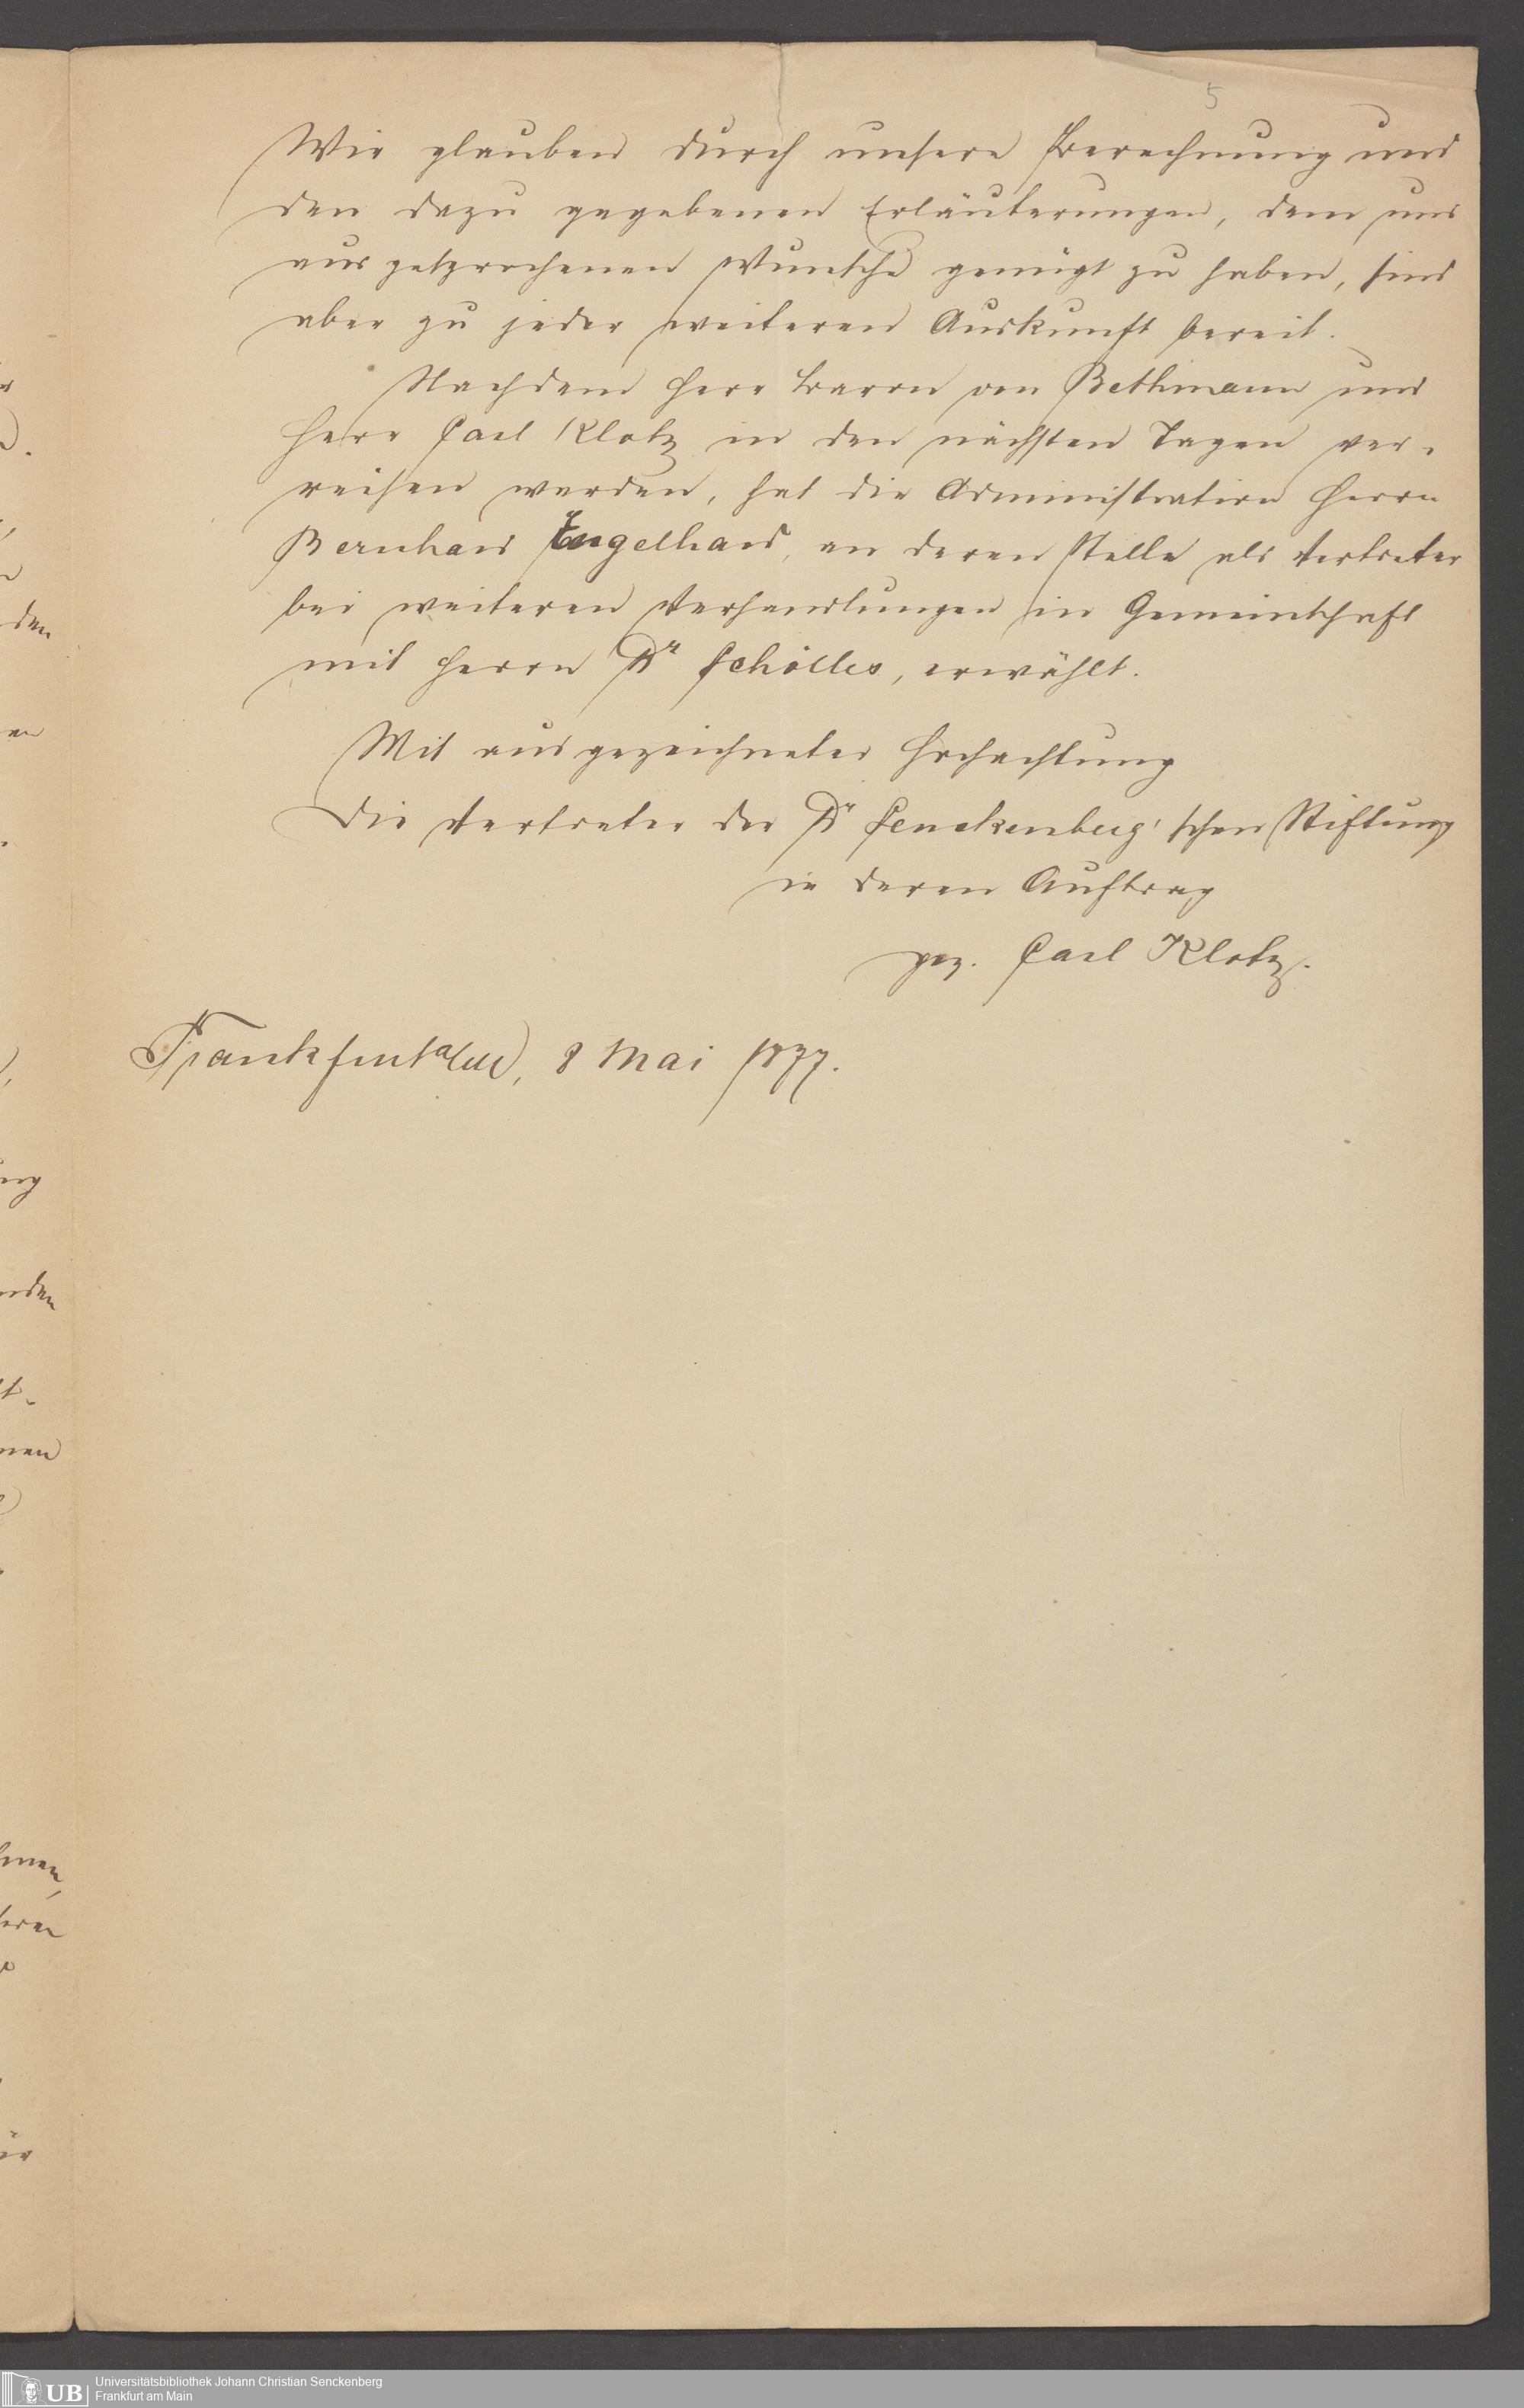 5
Wir glauben durch unsere Berechnung und
den dazu gegebenen Erläuterungen, dem uns
ausgesprochenen Wunsche genügt zu haben, sind
aber zu jeder weiteren Auskunft bereit.
Nachdem Herr Baron von Bethmann und
Herr Carl Klotz in den nächsten Tagen ver-
reisen werden, hat die Administration Herrn
Bernhard Engelhard, an deren Stelle als Vertreter
bei weiteren Verhandlungen in Gemeinschaft
mit Herrn Dr Schölles, erwählt.
Mit ausgezeichneter Hochachtung
Die Vertreter der Dr Senckenberg'schen Stiftung
in deren Auftrag
gez. Carl Klotz.
Frankfurt a/M, 8 Mai 1877.
UB
Universitätsbibliothek Johann Christian Senckenberg
Frankfurt am Main